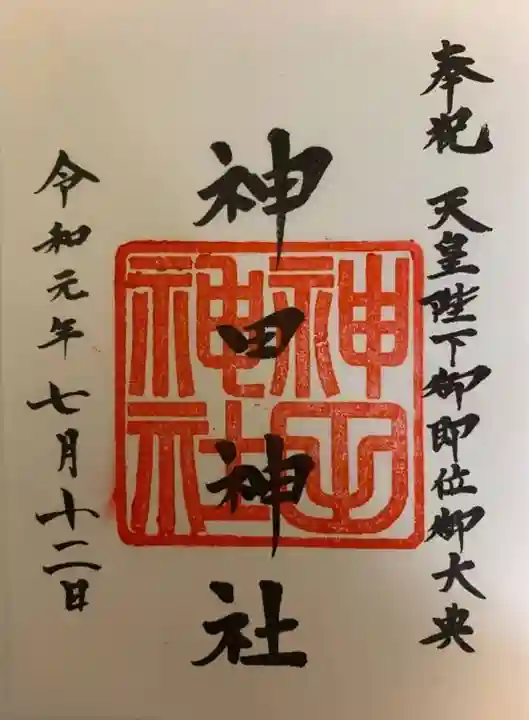 奉祝 天皇陛下御即位御大典
神田神社
神田神社
令和元年七月十二日